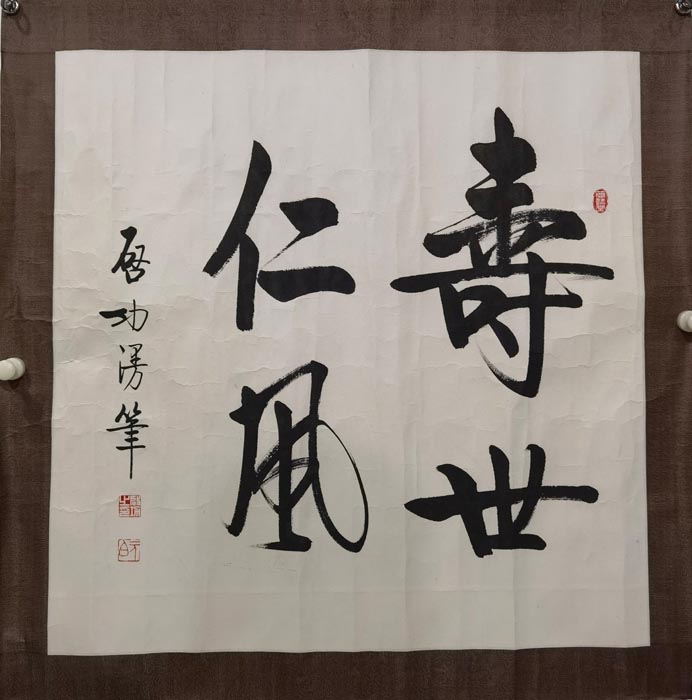 壽世
仁風
啓功漫筆